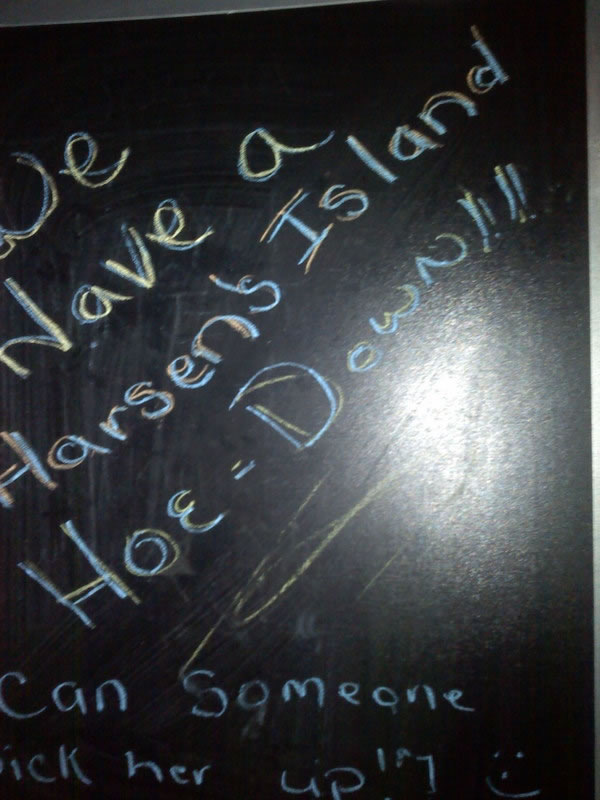 We
Have a
Harsen's Island
Hoe-Down!!!
Can Someone
pick her up!?! :)